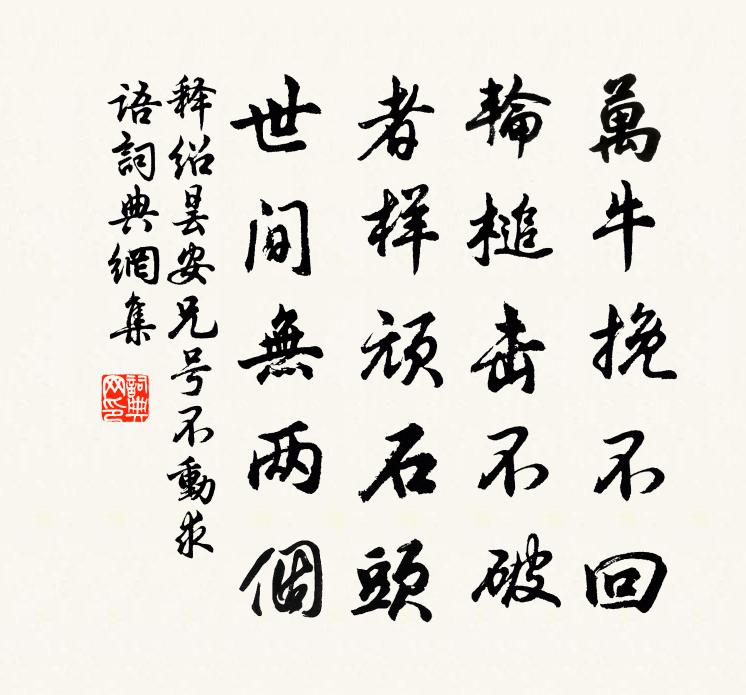 萬牛挽不回
輪槌击不破
者样顽石頭
世间無两個
释绍昙安兄号不動求
语詞典網集
詞典
网印